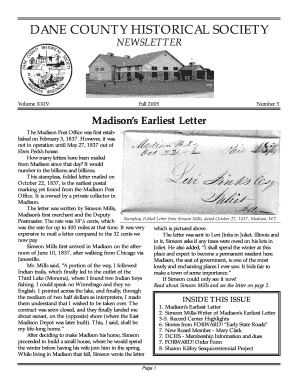 DANE COUNTY HISTORICAL SOCIETY
NEWSLETTER
Volume XXIV
Fall 2005
Number 3
Madison's Earliest Letter
The Madison Post Office was first estab-
lished on February 3, 1837. However, it was
not in operation until May 27, 1837 out of
Eben Peck's house.
How many letters have been mailed
from Madison since that day? It would
number in the billions and billions.
This stampless, folded letter mailed on
October 22, 1837, is the earliest postal
marking yet found from the Madison Post
Office. It is owned by a private collector in
Madison.
The letter was written by Simeon Mills,
Madison's first merchant and the Deputy
Postmaster. The rate was 18¾ cents, which
was the rate for up to 400 miles at that time. It was very
expensive to mail a letter compared to the 32 cents we
now pay.
Simeon Mills first arrived in Madison on the after-
noon of June 10, 1837, after walking from Chicago via
Janesville.
Mr. Mills said, "A portion of the way, I followed
Indian trails, which finally led to the outlet of the
Third Lake (Monona), where I found two Indian boys
fishing. I could speak no Winnebago and they no
English. I pointed across the lake, and finally, through
the medium of two half dollars as interpreters, I made
them understand that I wished to be taken over. The
contract was soon closed, and they finally landed me
about sunset, on the (opposite) shore (where the East
Madison Depot was later built). This, I said, shall be
my life-long home."
After deciding to make Madison his home, Simeon
proceeded to build a small house, where he would spend
the winter before having his wife join him in the spring.
While living in Madison that fall, Simeon wrote the letter
Stampless, Folded Letter from Simeon Mills, dated October 22, 1837, Madison, W.T.
which is pictured above.
The letter was sent to Levi Jinks in Joliet, Illinois and
in it, Simeon asks if any taxes were owed on his lots in
Joliet. He also added, "I shall spend the winter at this
place and expect to become a permanent resident here.
Madison, the seat of government, is one of the most
lovely and enchanting places I ever saw. It bids fair to
make a town of some importance."
If Simeon could only see it now!
Read about Simeon Mills and see the letter on page 2.
INSIDE THIS ISSUE
1. Madison's Earliest Letter
2. Simeon Mills-Writer of Madison's Earliest Letter
3. Record Center Highlights
6. Stories from FORWARD! "Early State Roads"
7. New Board Member - Mary Clark
7. DCHS - Membership Information and dues
7. FORWARD! Order Form
8. Sharon Kilfoy Sesquicentennial Project
Page 1